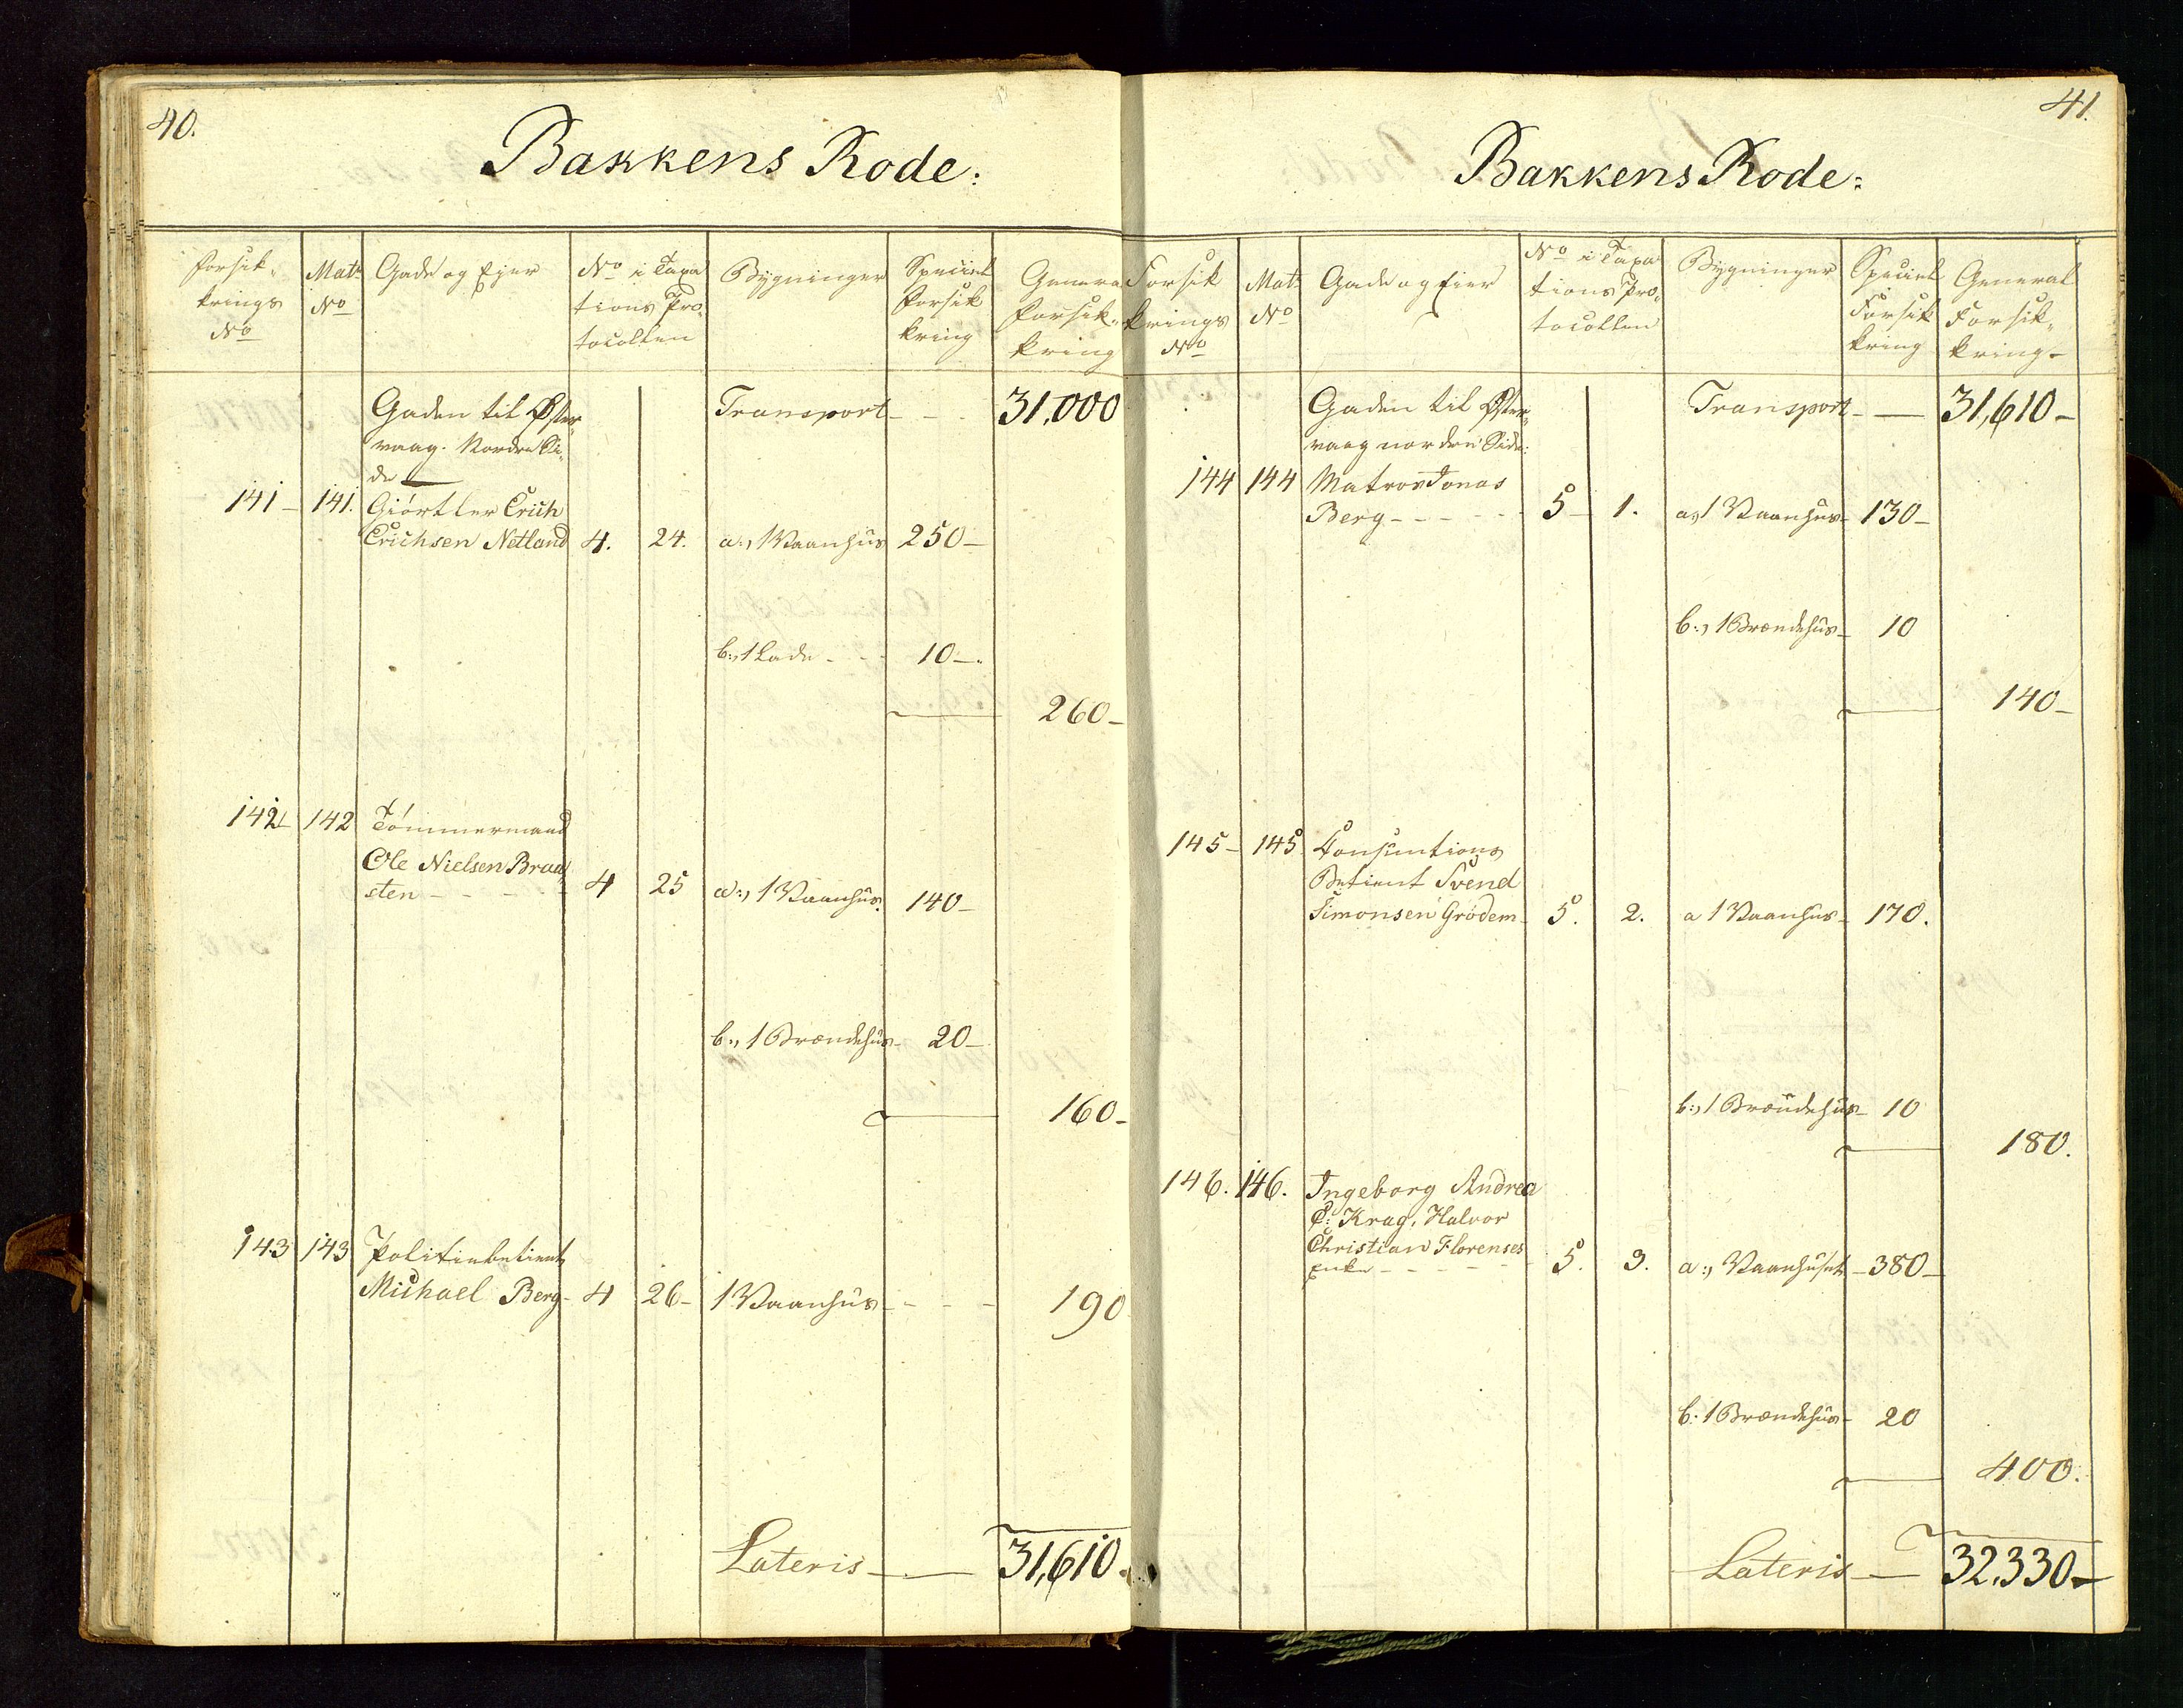 40.
Bakkens Rode:
Forsik-
krings
No
Matr
No
Gade og Ejer
No i Taxa
tions Pro-
tocollen
Bygninger
Speciel
Forsik
kring
General
Forsik-
kring
Gaden til Øster-
vaag. Nordre Si-
de
Transport - - 31,000
141 - 141. Giörtler Erich
Erichsen Netland 4. 24. a:, 1 Vaanhus 250 -
b:, 1 Lade - - 10 -
260 -
142 142 Tömmermand
Ole Nielsen Braa-
sten - - - - 4 25 a:, 1 Vaanhus 140 -
b:, 1 Brændehus - 20 -
160 -
143 143 Politiebetient
Michael Berg - 4 26 - 1 Vaanhus - - - 190
Lateris - - 31,610.
41.
Bakkens Rode:
Forsik
krings
No
Mat.
No
Gade og Eier
No i Taxa
tions Pro-
tocollen
Bygninger
Speciel
Forsik
kring
General
Forsik-
kring -
Gaden til Øster-
vaag nordre Side:
Transport - - 31,610 -
144 144 Matros Jonas
Berg - - - - - 5 - 1. a, 1 Vaanhus - 130 -
b:, 1 Brændehus - 10
140 -
145 - 145 Consumtions
Betient Svend
Simonsen Grödem - 5. 2. a 1 Vaanhus - 170.
b:, 1 Brændehus - 10
180.
146. 146. Ingeborg Andrea
C: Krag, Halvor
Christian Florenses
Enke - - - - - 5. 3. a:, Vaanhuset - 380 -
b: 1 Brændehus - 20
400.
Lateris - 32,330 -